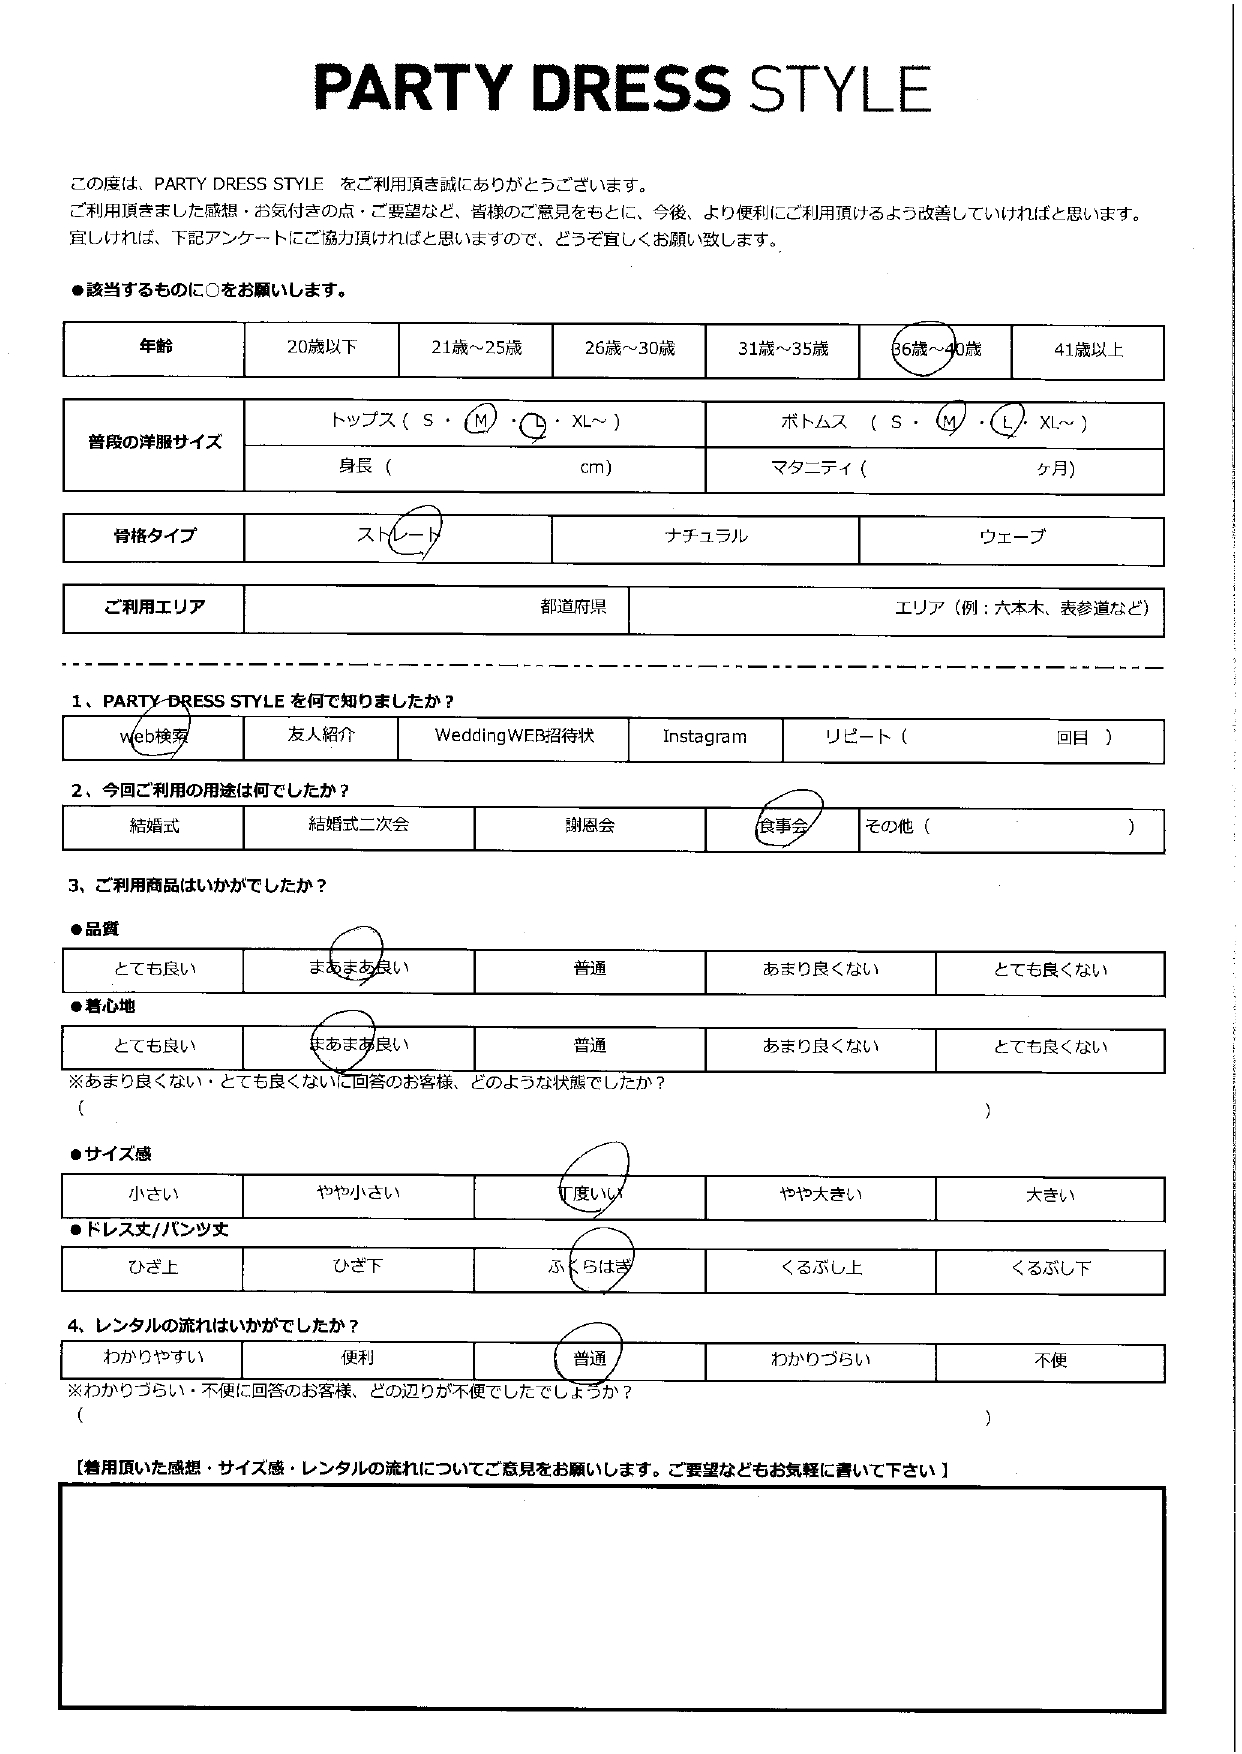 PARTY DRESS STYLE
この度は、PARTY DRESS STYLE をご利用頂き誠にありがとうございます。
ご利用頂きました感想・お気付きの点・ご要望など、皆様のご意見をもとに、今後、より便利にご利用頂けるよう改善していければと思います。
宜しければ、下記アンケートにご協力頂ければと思いますので、どうぞ宜しくお願い致します。
●該当するものに○をお願いします。
年齢 20歳以下 21歳～25歳 26歳～30歳 31歳～35歳 36歳～40歳 41歳以上
普段の洋服サイズ
トップス ( S ・ M ・ L ・ XL～ ) ボトムス ( S ・ M ・ L ・ XL～ )
身長 ( cm) マタニティ ( ケ月)
骨格タイプ ストレート ナチュラル ウェーブ
ご利用エリア 都道府県 エリア（例：六本木、表参道など）
1、PARTY DRESS STYLE を何で知りましたか？
web検索 友人紹介 WeddingWEB招待状 Instagram リピート ( 回目 )
2、今回ご利用の用途は何でしたか？
結婚式 結婚式二次会 謝恩会 食事会 その他 ( )
3、ご利用商品はいかがでしたか？
●品質
とても良い まあまあ良い 普通 あまり良くない とても良くない
●着心地
とても良い まあまあ良い 普通 あまり良くない とても良くない
※あまり良くない・とても良くないに回答のお客様、どのような状態でしたか？
( )
●サイズ感
小さい やや小さい 丁度いい やや大きい 大きい
●ドレス丈/パンツ丈
ひざ上 ひざ下 ふくらはぎ くるぶし上 くるぶし下
4、レンタルの流れはいかがでしたか？
わかりやすい 便利 普通 わかりづらい 不便
※わかりづらい・不便に回答のお客様、どの辺りが不便でしたでしょうか？
( )
【着用頂いた感想・サイズ感・レンタルの流れについてご意見をお願いします。ご要望などもお気軽に書いて下さい 】